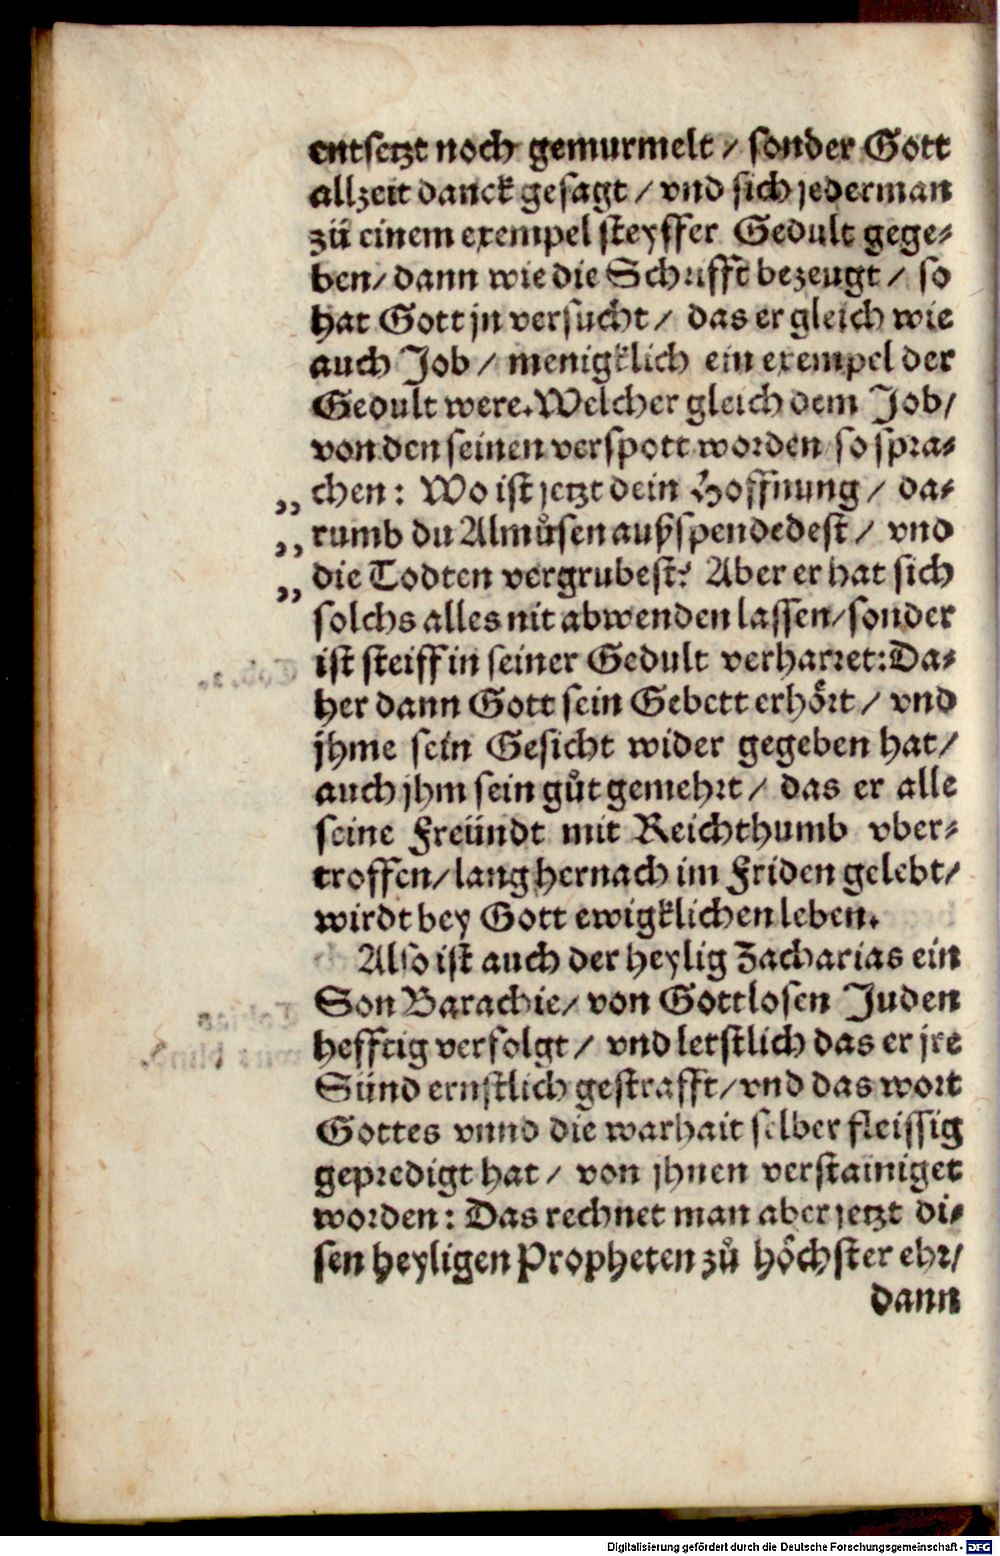 entsetzt noch gemurmelt / sonder Gott
allzeit danck gesagt / vnd sich jederman
zů einem exempel steyffer Gedult gege⸗
ben / dann wie die Schrifft bezeugt / so
hat Gott jn versucht / das er gleich wie
auch Job / menigklich ein exempel der
Gedult were. Welcher gleich dem Job /
von den seinen verspott worden so spra⸗
„ chen : Wo ist jetzt dein Hoffnung / da⸗
„ rumb du Almůsen außspendedest / vnd
„ die Todten vergrubest? Aber er hat sich
solchs alles nit abwenden lassen / sonder
ist steiff in seiner Gedult verharret: Da⸗
her dann Gott sein Gebett erhört / vnd
jhme sein Gesicht wider gegeben hat /
auch jhm sein gůt gemehrt / das er alle
seine Freündt mit Reichthumb vber⸗
troffen / lang hernach im Friden gelebt /
wirdt bey Gott ewigklichen leben.
Also ist auch der heylig Zacharias ein
Son Barachie / von Gottlosen Juden
hefftig verfolgt / vnd letstlich das er jre
Sünd ernstlich gestrafft / vnd das wort
Gottes vnnd die warhait selber fleissig
gepredigt hat / von jhnen verstainiget
worden : Das rechnet man aber jetzt di⸗
sen heyligen Propheten zů höchster ehr /
dann
Digitalisierung gefördert durch die Deutsche Forschungsgemeinschaft - DFG